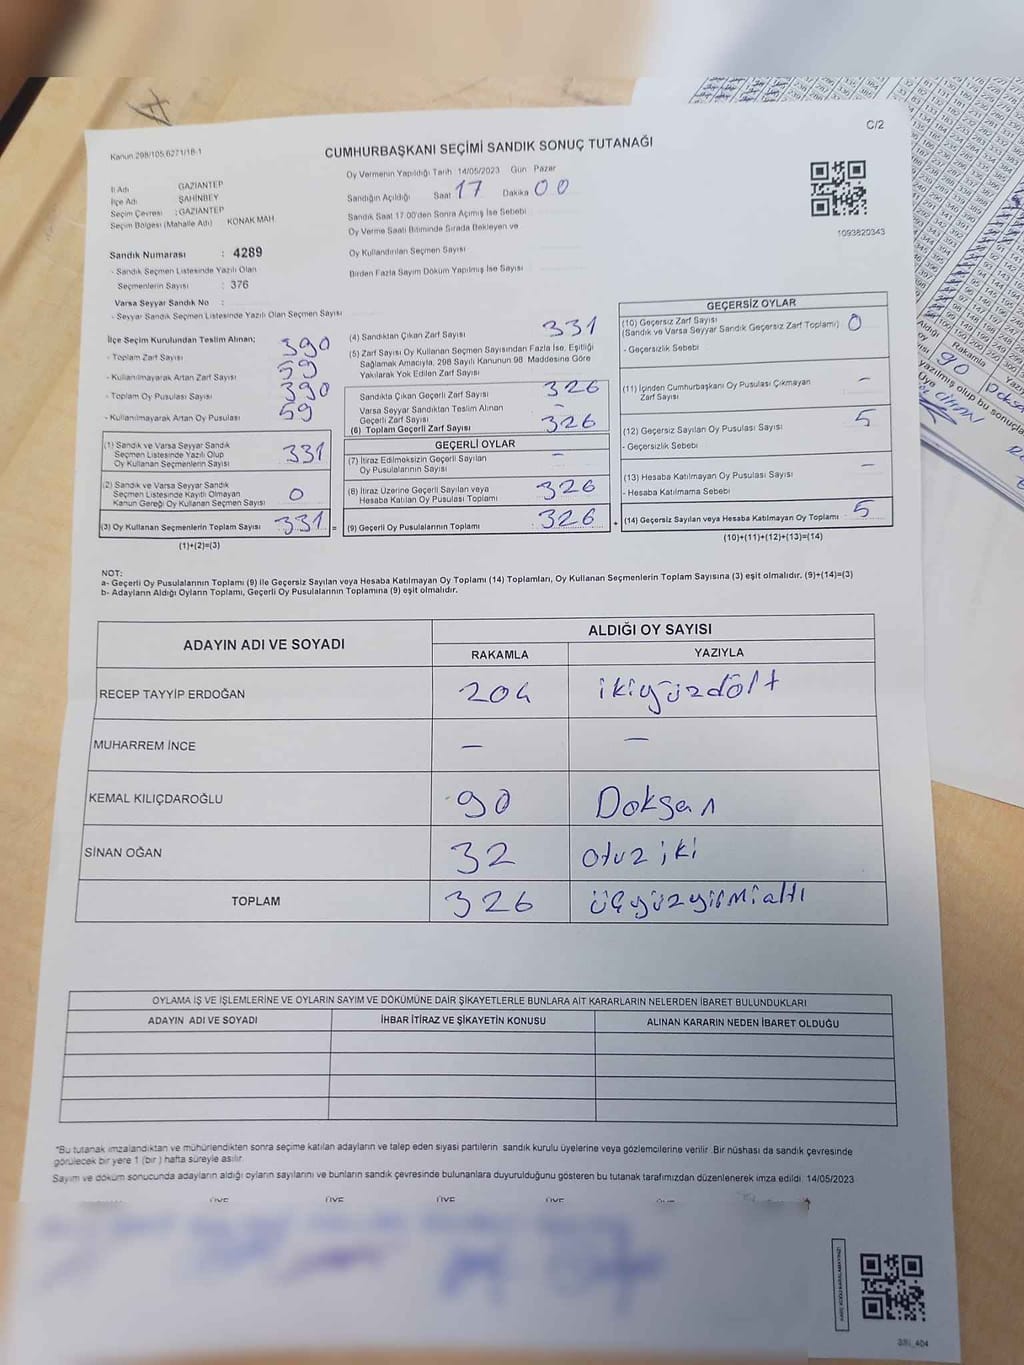 C/2
Kanun:298/105;6271/18-1
CUMHURBAŞKANI SEÇİMİ SANDIK SONUÇ TUTANAĞI
İl Adı GAZİANTEP
İlçe Adı ŞAHİNBEY
Seçim Çevresi : GAZİANTEP
Seçim Bölgesi (Mahalle Adı) KONAK MAH.
Oy Vermenin Yapıldığı Tarih 14/05/2023 Gün Pazar
Sandığın Açıldığı Saat 17 Dakika 00
Sandık Saat 17.00'den Sonra Açılmış İse Sebebi
Oy Verme Saati Bitiminde Sırada Bekleyen ve
Oy Kullandırılan Seçmen Sayısı
Birden Fazla Sayım Döküm Yapılmış İse Sayısı
1093820343
Sandık Numarası : 4289
- Sandık Seçmen Listesinde Yazılı Olan
Seçmenlerin Sayısı : 376
Varsa Seyyar Sandık No :
- Seyyar Sandık Seçmen Listesinde Yazılı Olan Seçmen Sayısı
İlçe Seçim Kurulundan Teslim Alınan;
- Toplam Zarf Sayısı 390
- Kullanılmayarak Artan Zarf Sayısı 59
- Toplam Oy Pusulası Sayısı 390
- Kullanılmayarak Artan Oy Pusulası 59
(1) Sandık ve Varsa Seyyar Sandık
Seçmen Listesinde Yazılı Olup
Oy Kullanan Seçmenlerin Sayısı 331
(2) Sandık ve Varsa Seyyar Sandık
Seçmen Listesinde Kayıtlı Olmayan
Kanun Gereği Oy Kullanan Seçmen Sayısı 0
(3) Oy Kullanan Seçmenlerin Toplam Sayısı 331 =
(1)+(2)=(3)
(4) Sandıktan Çıkan Zarf Sayısı 331
(5) Zarf Sayısı Oy Kullanan Seçmen Sayısından Fazla İse, Eşitliği
Sağlamak Amacıyla, 298 Sayılı Kanunun 98. Maddesine Göre
Yakılarak Yok Edilen Zarf Sayısı
Sandıkta Çıkan Geçerli Zarf Sayısı 326
Varsa Seyyar Sandıktan Teslim Alınan
Geçerli Zarf Sayısı –
(6) Toplam Geçerli Zarf Sayısı 326
GEÇERLİ OYLAR
(7) İtiraz Edilmeksizin Geçerli Sayılan
Oy Pusulalarının Sayısı –
(8) İtiraz Üzerine Geçerli Sayılan veya
Hesaba Katılan Oy Pusulası Toplamı 326
(9) Geçerli Oy Pusulalarının Toplamı 326 +
GEÇERSİZ OYLAR
(10) Geçersiz Zarf Sayısı
(Sandık ve Varsa Seyyar Sandık Geçersiz Zarf Toplamı) 0
- Geçersizlik Sebebi
(11) İçinden Cumhurbaşkanı Oy Pusulası Çıkmayan
Zarf Sayısı –
(12) Geçersiz Sayılan Oy Pusulası Sayısı 5
- Geçersizlik Sebebi
(13) Hesaba Katılmayan Oy Pusulası Sayısı –
- Hesaba Katılmama Sebebi
(14) Geçersiz Sayılan veya Hesaba Katılmayan Oy Toplamı 5
(10)+(11)+(12)+(13)=(14)
NOT:
a- Geçerli Oy Pusulalarının Toplamı (9) ile Geçersiz Sayılan veya Hesaba Katılmayan Oy Toplamı (14) Toplamları, Oy Kullanan Seçmenlerin Toplam Sayısına (3) eşit olmalıdır. (9)+(14)=(3)
b- Adayların Aldığı Oyların Toplamı, Geçerli Oy Pusulalarının Toplamına (9) eşit olmalıdır.
ADAYIN ADI VE SOYADI ALDIĞI OY SAYISI
RAKAMLA YAZIYLA
RECEP TAYYİP ERDOĞAN 204 ikiyüzdört
MUHARREM İNCE – –
KEMAL KILIÇDAROĞLU 90 Doksan
SİNAN OĞAN 32 otuz iki
TOPLAM 326 üçyüzyirmialtı
OYLAMA İŞ VE İŞLEMLERİNE VE OYLARIN SAYIM VE DÖKÜMÜNE DAİR ŞİKAYETLERLE BUNLARA AİT KARARLARIN NELERDEN İBARET BULUNDUKLARI
ADAYIN ADI VE SOYADI İHBAR İTİRAZ VE ŞİKAYETİN KONUSU ALINAN KARARIN NEDEN İBARET OLDUĞU
*Bu tutanak imzalandıktan ve mühürlendikten sonra seçime katılan adayların ve talep eden siyasi partilerin sandık kurulu üyelerine veya gözlemcilerine verilir. Bir nüshası da sandık çevresinde
görülecek bir yere 1 (bir) hafta süreyle asılır.
Sayım ve döküm sonucunda adayların aldığı oyların sayılarını ve bunların sandık çevresinde bulunanlara duyurulduğunu gösteren bu tutanak tarafımızdan düzenlenerek imza edildi. 14/05/2023
ÜYE ÜYE ÜYE ÜYE